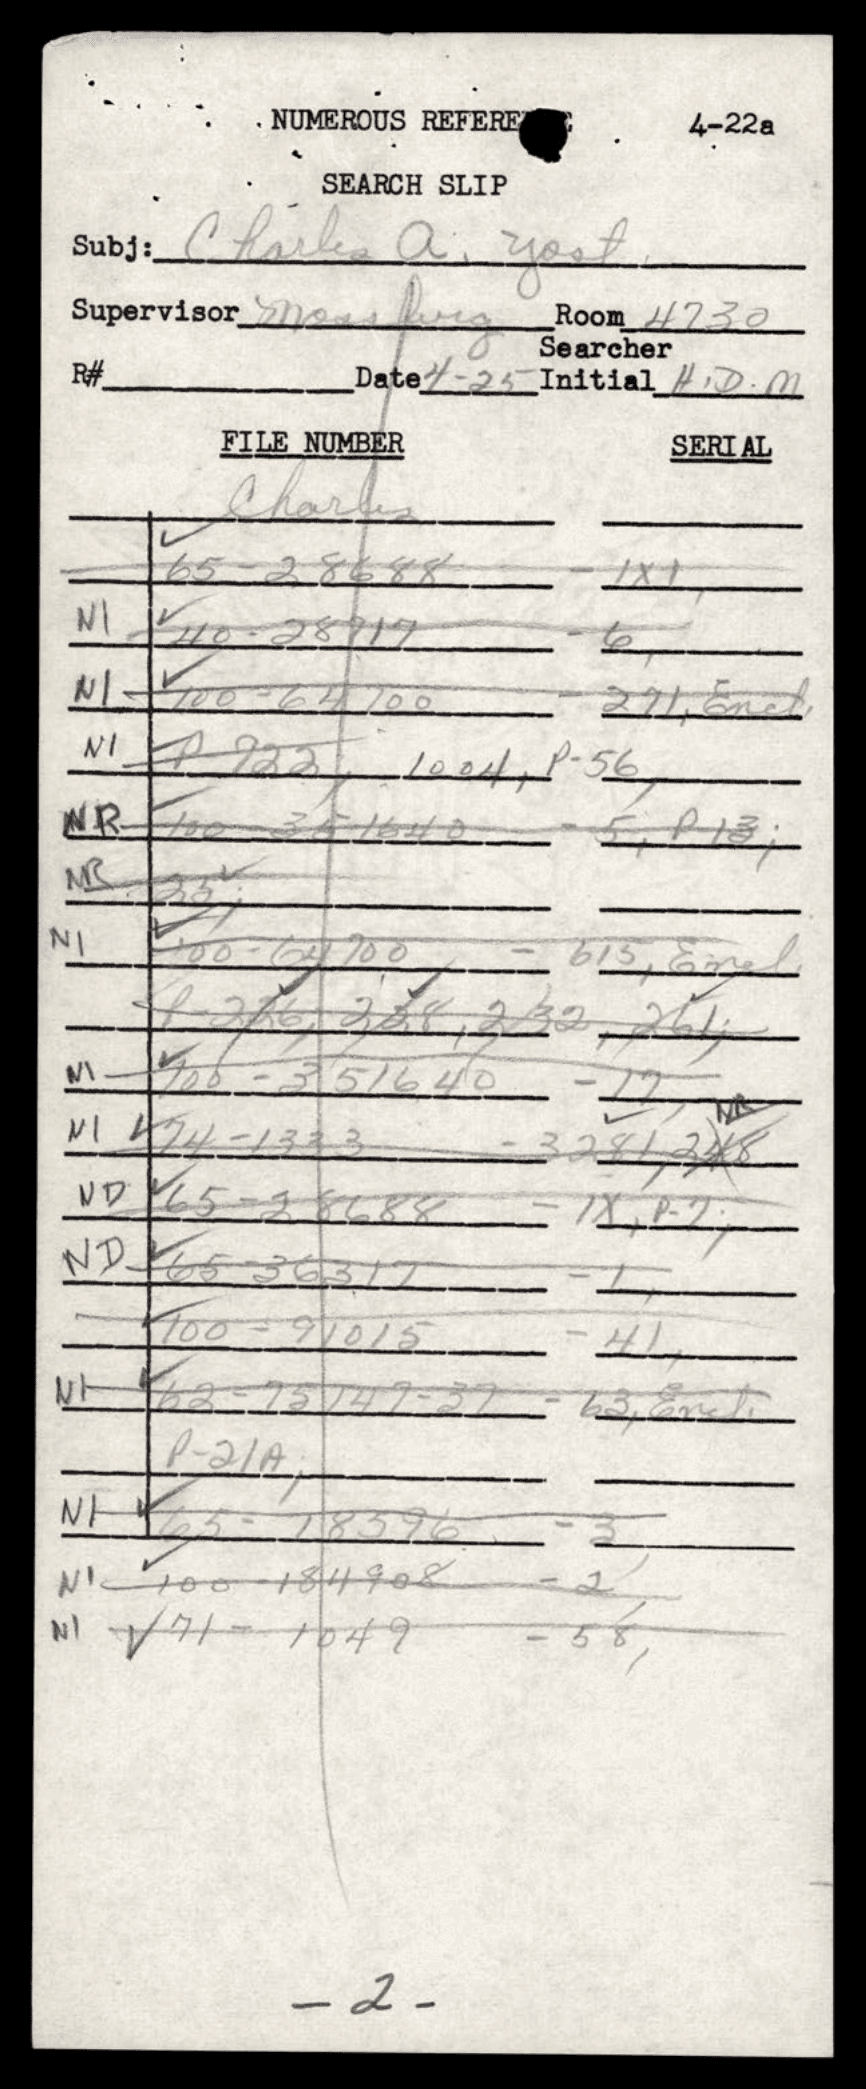 NUMEROUS REFERE 4-22a
SEARCH SLIP
Subj: Charles A. Yost
Supervisor Mossburg Room 4730
Searcher
R# Date 4-25 Initial H.D.M
FILE NUMBER SERIAL
Charles
65-28688 - 1X1,
NI 40-28917 - 6,
NI 100-64700 - 271, Encl.
NI P-922, 1004, P-56,
NR 100-351640 - 5, P 13;
NR 25;
NI 100-64700 - 615, Encl.
P-226, 228, 232, 261;
NI 100-351640 - 17,
NR
NI 74-1333 - 3281, 248
ND 65-28688 - 1X, P-7;
ND 65-36317 - 1,
100-91015 - 41,
NI 62-75147-37 - 63, Encl.
P-21A,
NI 65-18596 - 3,
NI 100-184908 - 2,
NI 71-1049 - 58,
- 2 -